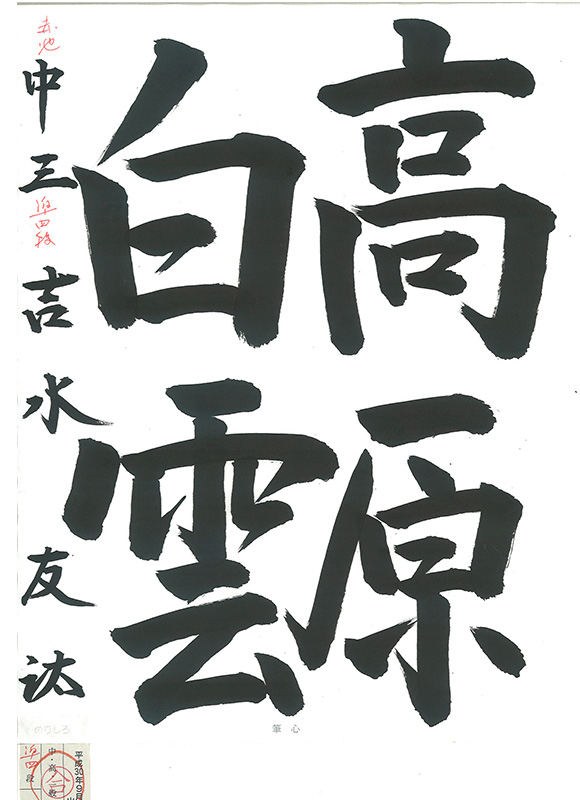 高原
白雲
赤池
中三 準四段 吉水友汰
のりしろ
筆心
平成30年9月
中・高 一般
準四段